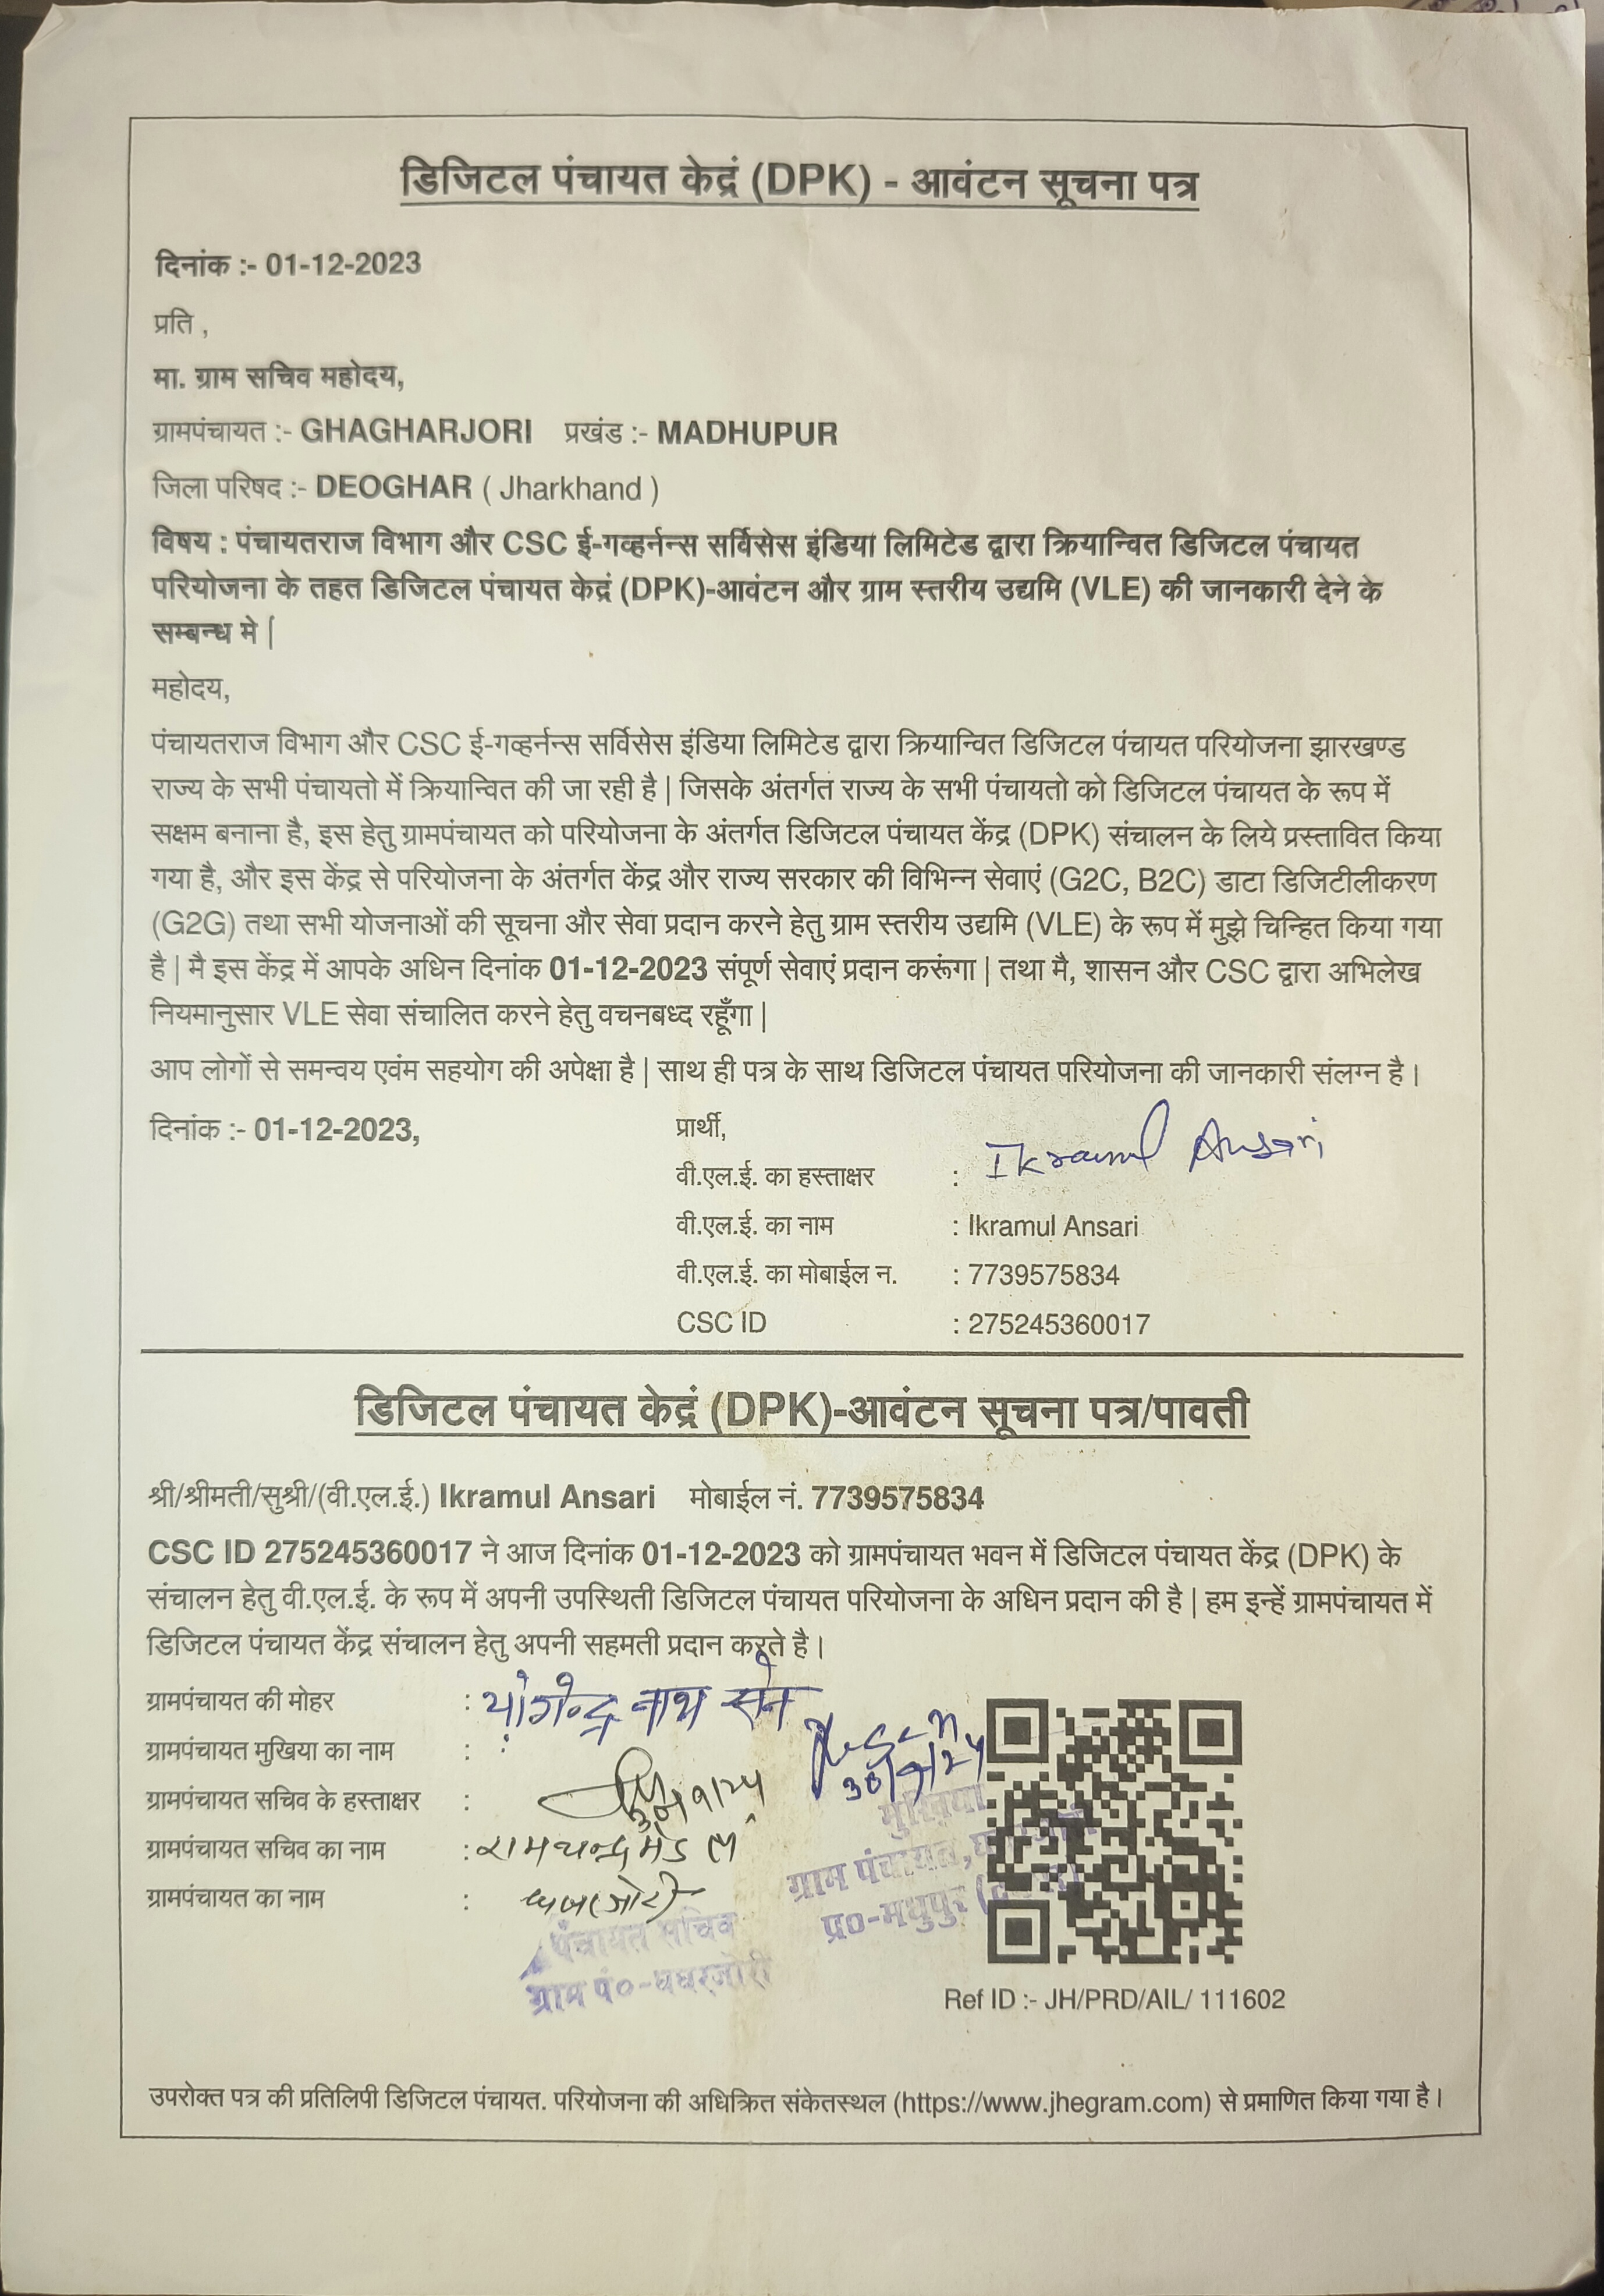 डिजिटल पंचायत केद्रं (DPK) - आवंटन सूचना पत्र
दिनांक :- 01-12-2023
प्रति ,
मा. ग्राम सचिव महोदय,
ग्रामपंचायत :- GHAGHARJORI प्रखंड :- MADHUPUR
जिला परिषद :- DEOGHAR ( Jharkhand )
विषय : पंचायतराज विभाग और CSC ई-गव्हर्नन्स सर्विसेस इंडिया लिमिटेड द्वारा क्रियान्वित डिजिटल पंचायत
परियोजना के तहत डिजिटल पंचायत केद्रं (DPK)-आवंटन और ग्राम स्तरीय उद्यमि (VLE) की जानकारी देने के
सम्बन्ध मे |
महोदय,
पंचायतराज विभाग और CSC ई-गव्हर्नन्स सर्विसेस इंडिया लिमिटेड द्वारा क्रियान्वित डिजिटल पंचायत परियोजना झारखण्ड
राज्य के सभी पंचायतो में क्रियान्वित की जा रही है | जिसके अंतर्गत राज्य के सभी पंचायतो को डिजिटल पंचायत के रूप में
सक्षम बनाना है, इस हेतु ग्रामपंचायत को परियोजना के अंतर्गत डिजिटल पंचायत केंद्र (DPK) संचालन के लिये प्रस्तावित किया
गया है, और इस केंद्र से परियोजना के अंतर्गत केंद्र और राज्य सरकार की विभिन्न सेवाएं (G2C, B2C) डाटा डिजिटीलीकरण
(G2G) तथा सभी योजनाओं की सूचना और सेवा प्रदान करने हेतु ग्राम स्तरीय उद्यमि (VLE) के रूप में मुझे चिन्हित किया गया
है | मै इस केंद्र में आपके अधिन दिनांक 01-12-2023 संपूर्ण सेवाएं प्रदान करूंगा | तथा मै, शासन और CSC द्वारा अभिलेख
नियमानुसार VLE सेवा संचालित करने हेतु वचनबध्द रहूँगा |
आप लोगों से समन्वय एवंम सहयोग की अपेक्षा है | साथ ही पत्र के साथ डिजिटल पंचायत परियोजना की जानकारी संलग्न है।
दिनांक :- 01-12-2023, प्रार्थी,
वी.एल.ई. का हस्ताक्षर : Ikramul Ansari
वी.एल.ई. का नाम : Ikramul Ansari
वी.एल.ई. का मोबाईल न. : 7739575834
CSC ID : 275245360017
डिजिटल पंचायत केद्रं (DPK)-आवंटन सूचना पत्र/पावती
श्री/श्रीमती/सुश्री/(वी.एल.ई.) Ikramul Ansari मोबाईल नं. 7739575834
CSC ID 275245360017 ने आज दिनांक 01-12-2023 को ग्रामपंचायत भवन में डिजिटल पंचायत केंद्र (DPK) के
संचालन हेतु वी.एल.ई. के रूप में अपनी उपस्थिती डिजिटल पंचायत परियोजना के अधिन प्रदान की है | हम इन्हें ग्रामपंचायत में
डिजिटल पंचायत केंद्र संचालन हेतु अपनी सहमती प्रदान करते है।
ग्रामपंचायत की मोहर : योगेन्द्र नाथ सेन
ग्रामपंचायत मुखिया का नाम :
ग्रामपंचायत सचिव के हस्ताक्षर :
मुखिया
ग्रामपंचायत सचिव का नाम : रामचन्द्र मंडल
ग्राम पंचायत,
ग्रामपंचायत का नाम : घघरजोरी
प्र०-मधुपुर
पंचायत सचिव
ग्राम पं०-घघरजोरी
Ref ID :- JH/PRD/AIL/ 111602
उपरोक्त पत्र की प्रतिलिपी डिजिटल पंचायत. परियोजना की अधिक्रित संकेतस्थल (https://www.jhegram.com) से प्रमाणित किया गया है।